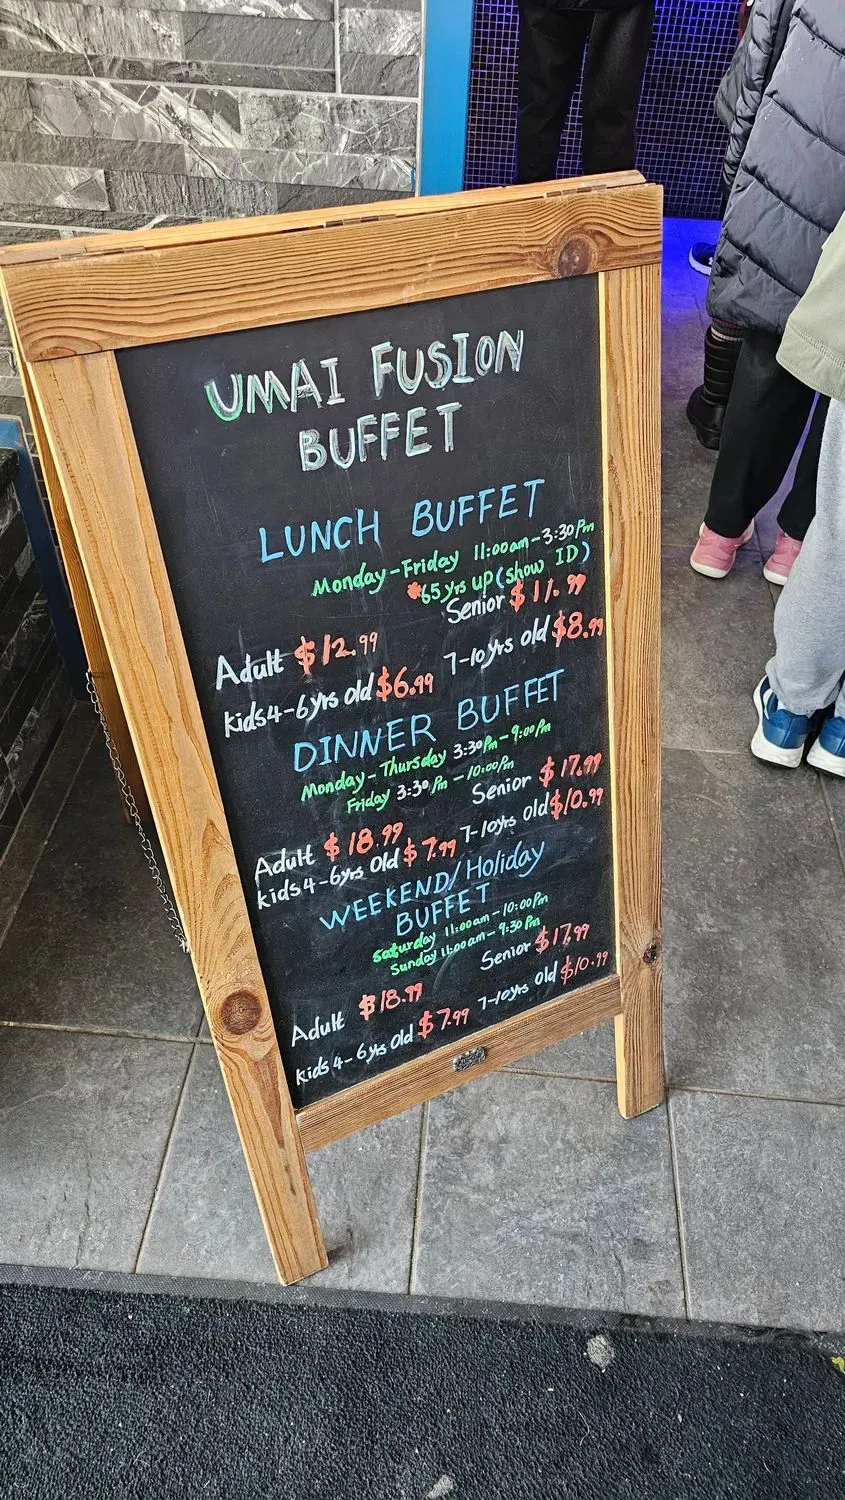 UMAI FUSION
BUFFET
LUNCH BUFFET
Monday-Friday 11:00am-3:30Pm
*65yrs up (show ID)
Senior $11.99
Adult $12.99
kids 4-6yrs old $6.99 7-10yrs old $8.99
DINNER BUFFET
Monday-Thursday 3:30Pm-9:00Pm
Friday 3:30Pm-10:00Pm
Senior $17.99
Adult $18.99
kids 4-6yrs Old $7.99 7-10yrs old $10.99
WEEKEND/Holiday
BUFFET
Saturday 11:00am-10:00Pm
Sunday 11:00am-9:30Pm
Senior $17.99
Adult $18.99
kids 4-6yrs Old $7.99 7-10yrs Old $10.99